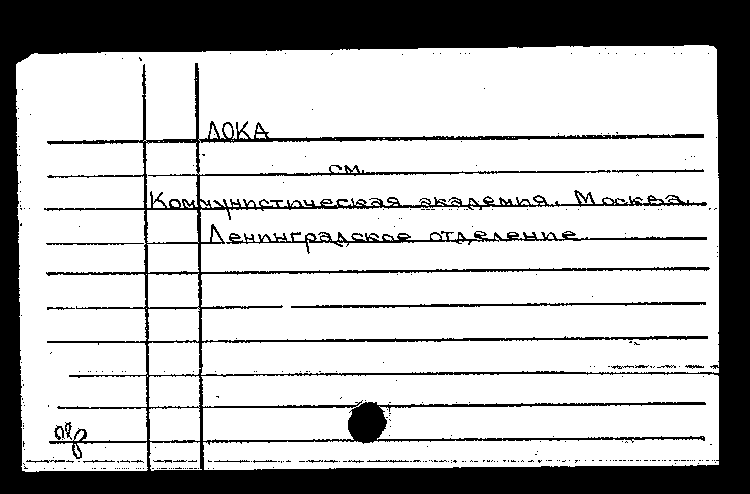 ЛОКА
см.
Коммунистическая академия. Москва.
Ленинградское отделение